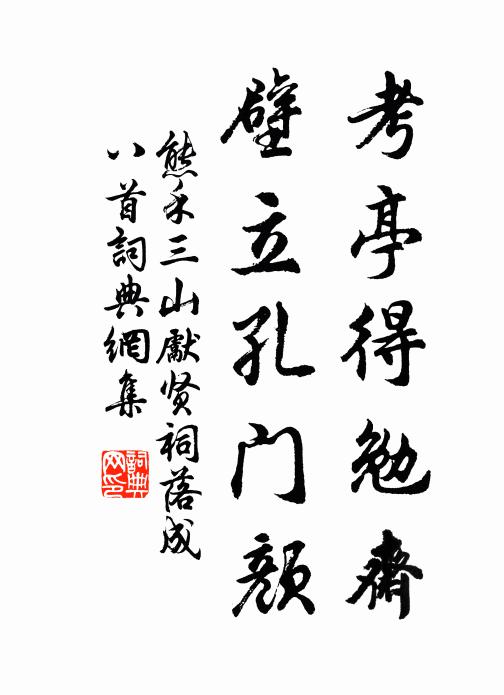 考亭得勉齋
壁立孔门顏
熊禾三山獻贤祠落成
八首詞典網集
詞典网印